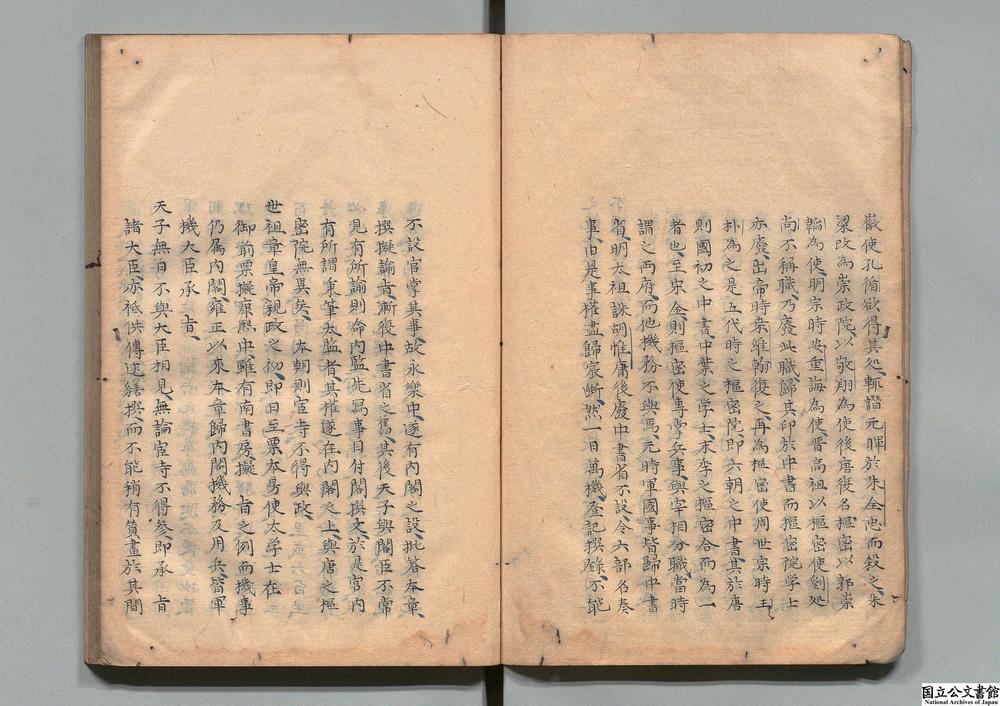 徽使孔循欲得其処輒譖元暉於朱全忠而殺之朱
梁改為崇政院以敬翔為使後唐復名樞密以郭崇
韜為使明宗時安重誨為使晋高祖以樞密使劉処
尚不稱職乃廢此職歸其印於中書而樞密院学士
亦廢出帝時桒維翰復之再為樞密使周世宗時王
朴為之是五代時之樞密院即六朝之中書其於唐
則國初之中書中葉之学士末季之樞密合而為一
者也至宋金則樞密使專掌兵事與宰相分職當時
謂之両府而他機務不與焉元時軍國事皆歸中書
省明太祖誅胡惟庸後廢中書省不設令六部名奏
事由是事權盡歸宸断然一日萬機登記撰錄不能
不設官掌其事故永樂中遂有内閣之設批答本章
撰擬諭旨漸復中書省之舊其後天子與閣臣不常
見有所諭則命内監先寫事目付閣撰文於是宮内
有所謂秉筆太監者其權遂在内閣之上與唐之樞
密院無異矣本朝則宦寺不得與政
世祖章皇帝親政之初即日至票本房使大学士在
御前票擬康熈中雖有南書房擬旨之例而機事
仍屬内閣雍正以來本章歸内閣機務及用兵皆軍
機大臣承旨
天子無日不與大臣相見無論宦寺不得参即承旨
諸大臣亦祗供傳述繕撰而不能稍有賛畫於其間
国立公文書館
National Archives of Japan